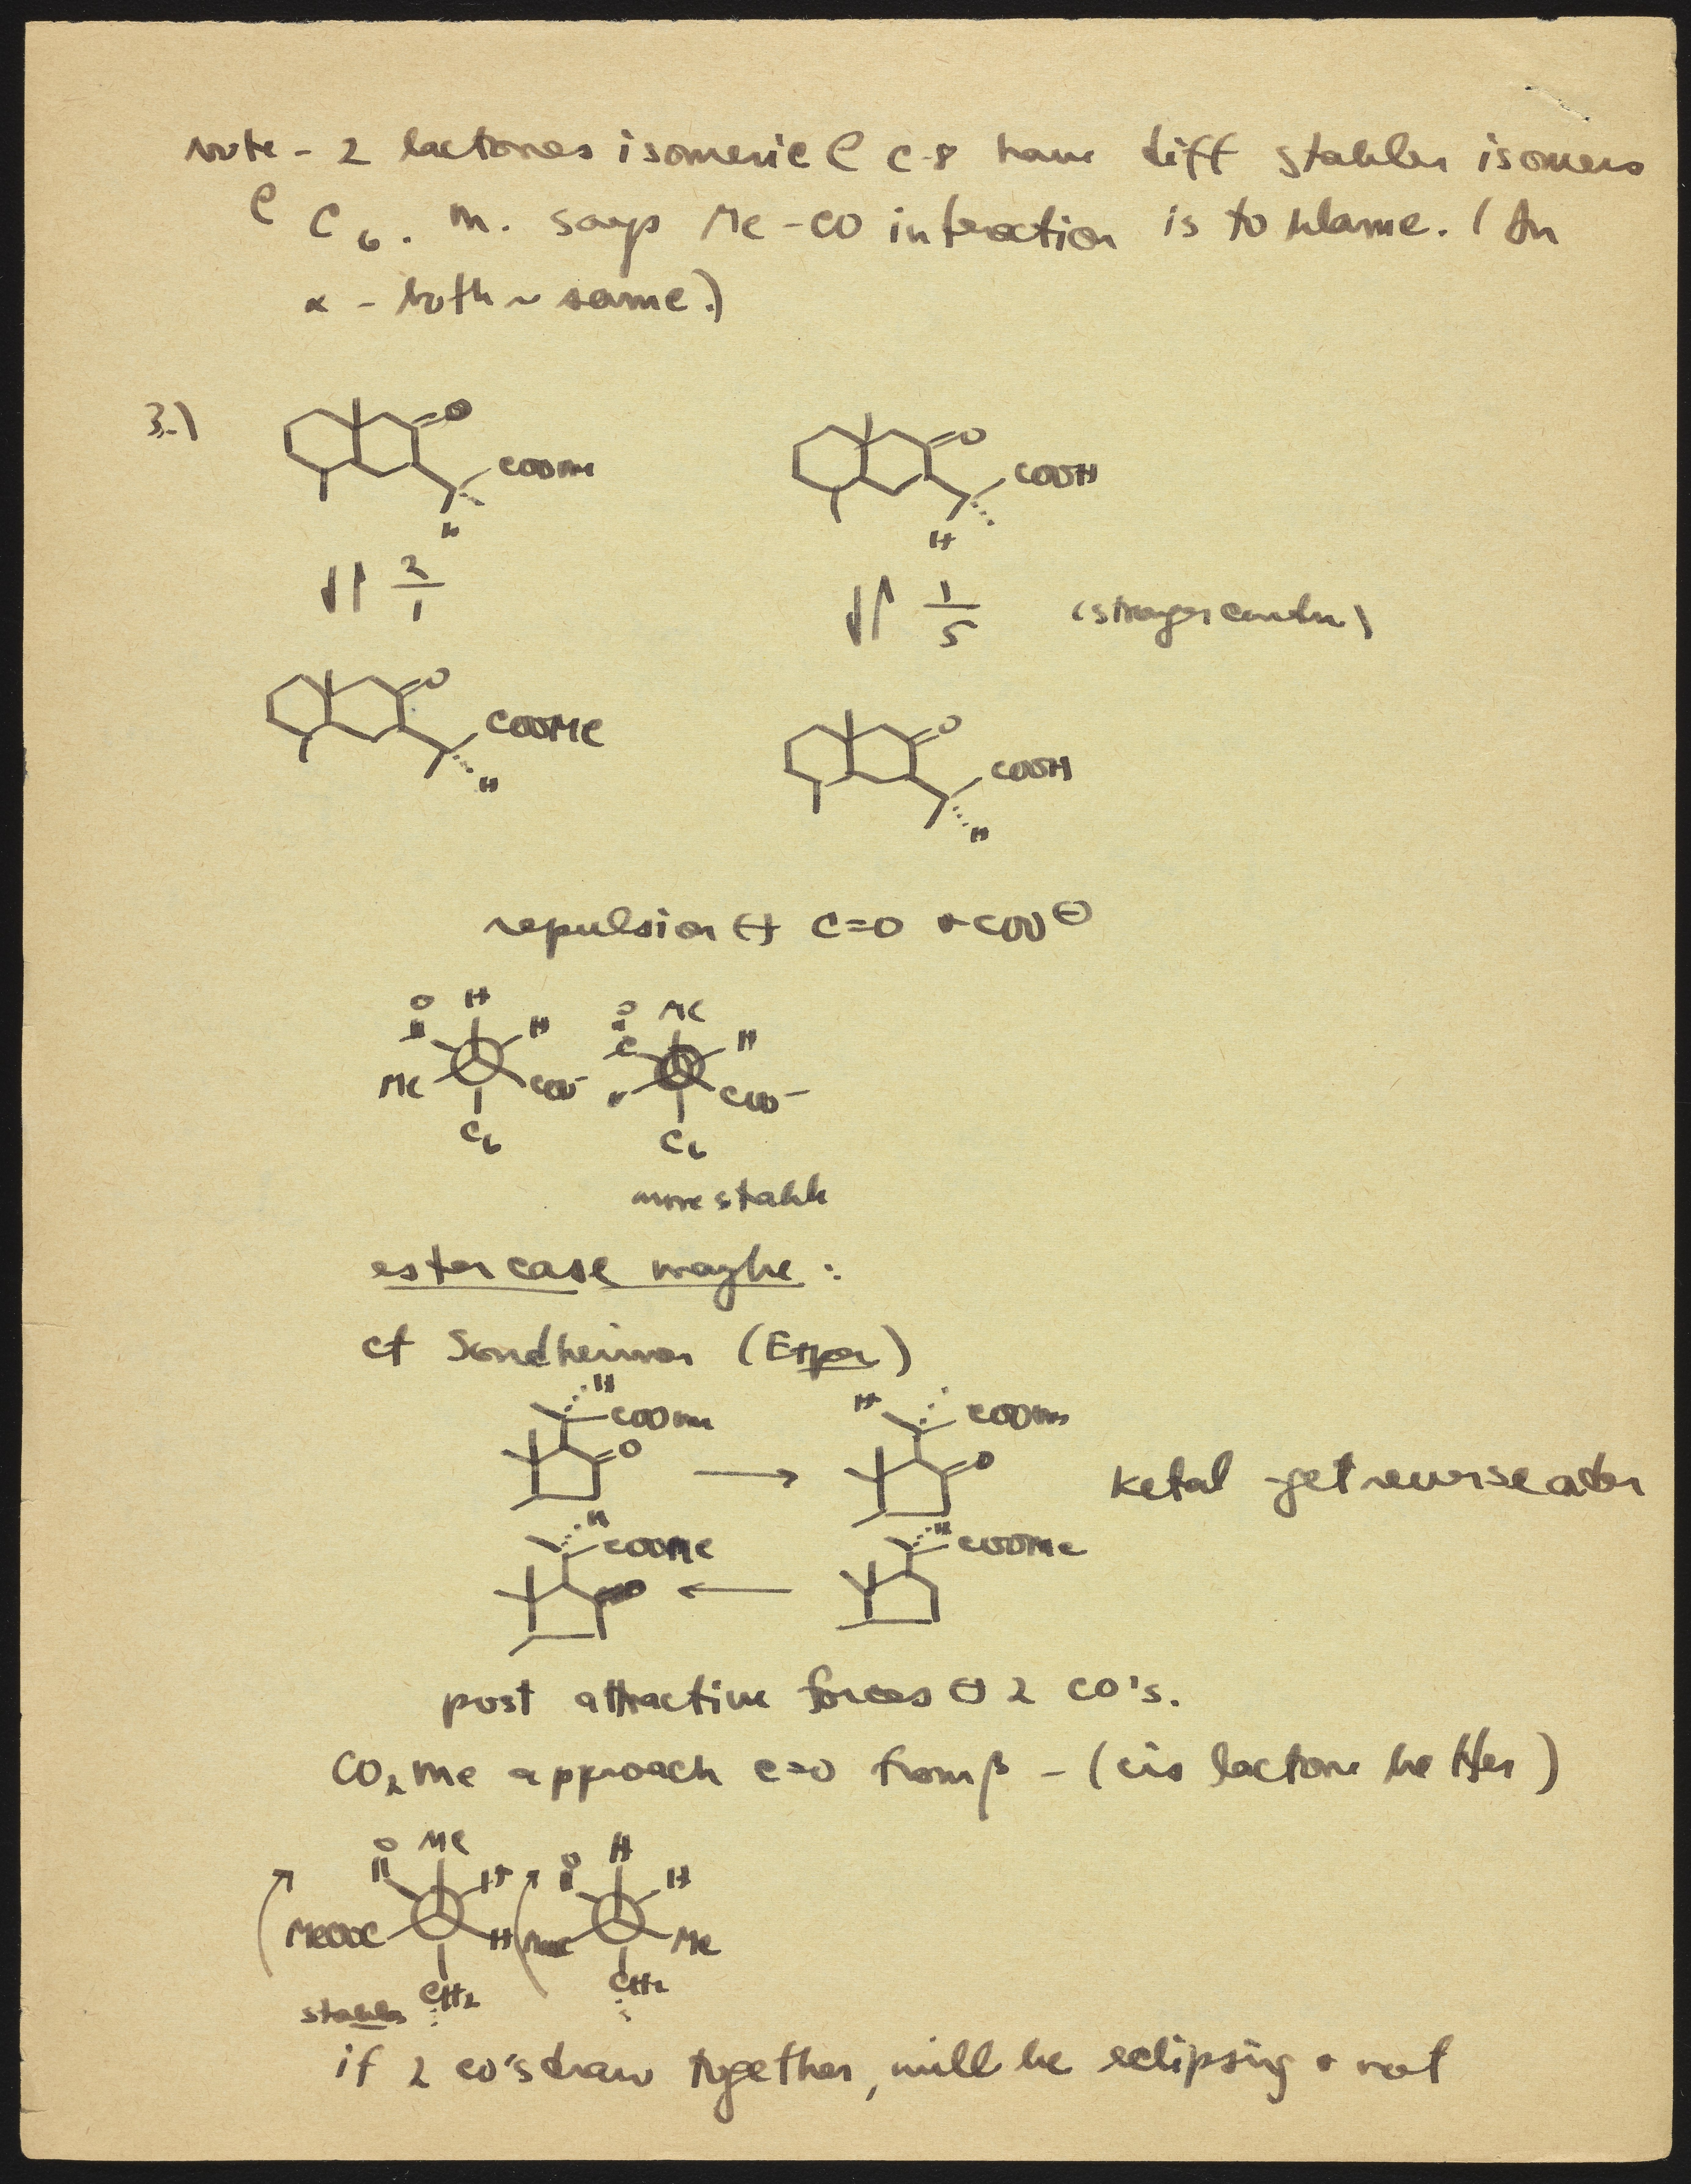 note - 2 lactones isomeric @ C-8 have diff stabler isomers
@ C6. M. says Me-CO interaction is to blame. (In
α - both ~ same.)
3.)
O
COOMe
H
O
COOH
H
2/1
1/5 (stronger contn)
O
COOMe
H
O
COOH
H
repulsion ↔ C=O + COO⊖
O H H
Me COO-
C6
O Me H
C
H COO-
C6
more stable
ester case maybe:
cf Sondheimer
H
COOMe
O
→
H
COOMe
O
Ketal get reverse
H
COOMe
O
←
H
COOMe
post attractive forces ↔ 2 CO's.
CO2Me approach C=O from β - (cis lactone better)
O Me H
MeOOC H
CH2
stabler
O H H
Me
CH2
if 2 CO's draw together, will be eclipsing + not